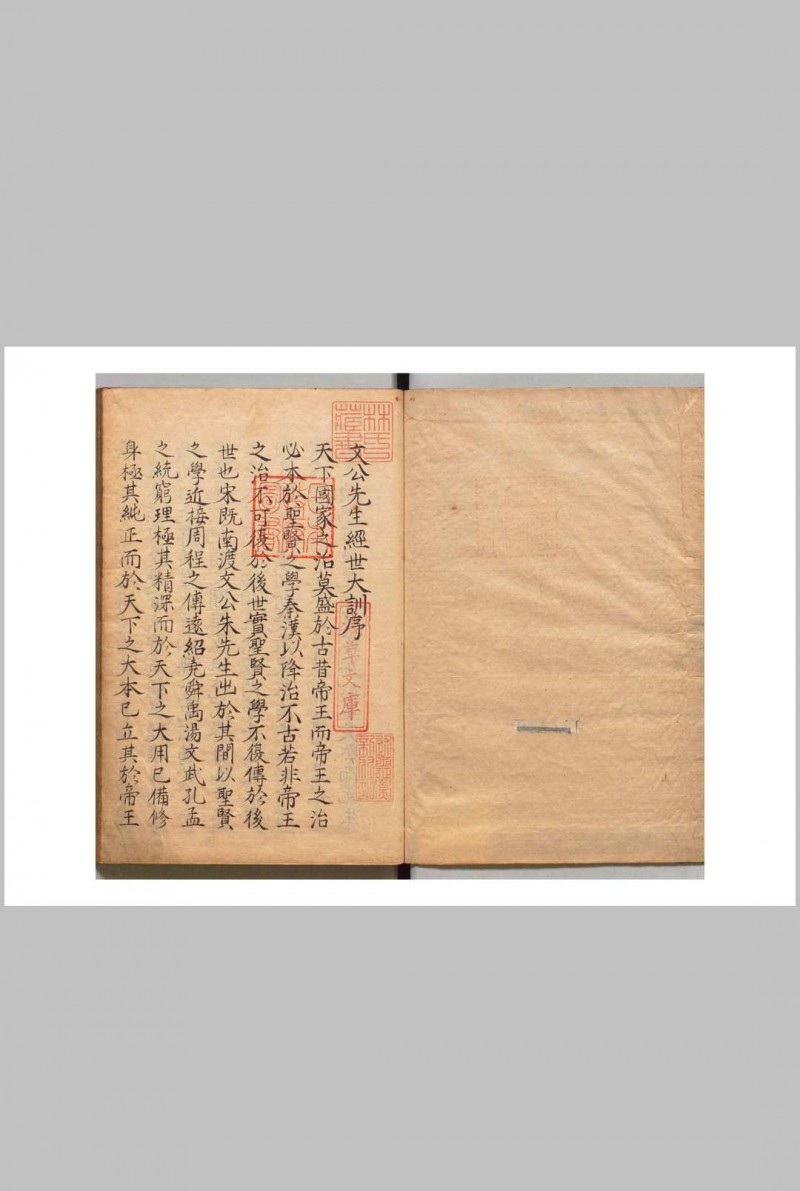 文公先生經世大訓序
天下國家之治莫盛於古昔帝王而帝王之治
必本於聖賢之學秦漢以降治不古若非帝王
之治不可復於後世實聖賢之學不復傳於後
世也宋既南渡文公朱先生出於其間以聖賢
之學近接周程之傳遠紹堯舜禹湯文武孔孟
之統窮理極其精深而於天下之大用已備修
身極其純正而於天下之大本已立其於帝王
林氏
藏書
文庫